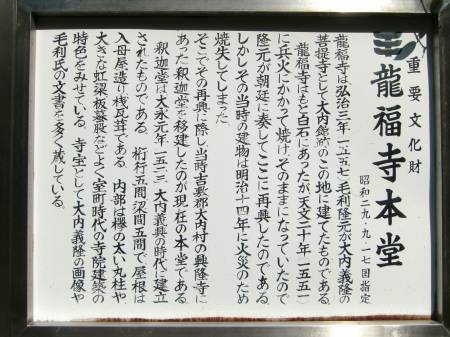 重要文化財
龍福寺本堂
昭和二九・九・一七国指定
龍福寺は弘治三年(一五五七)毛利隆元が大内義隆の
菩提寺として大内館跡のこの地に建てたものである。
龍福寺はもと白石にあったが、天文二十年(一五五一)
に兵火にかかって焼け、そのままになっていたので
隆元が朝廷に奏してここに再興したのである。
しかしその当時の建物は明治十四年に火災のため
焼失してしまった。
そこでその再興に際し、当時吉敷郡大内村の興隆寺に
あった釈迦堂を移建したのが現在の本堂である。
釈迦堂は大永元年(一五二一)大内義興の時代に建立
されたものである。桁行五間、梁間五間で屋根は
入母屋造り桟瓦葺である。内部は欅の太い丸柱や
大きな虹梁、板蟇股などよく室町時代の寺院建築の
特色をみせている。寺宝として大内義隆の画像や
毛利氏の文書を多く蔵している。